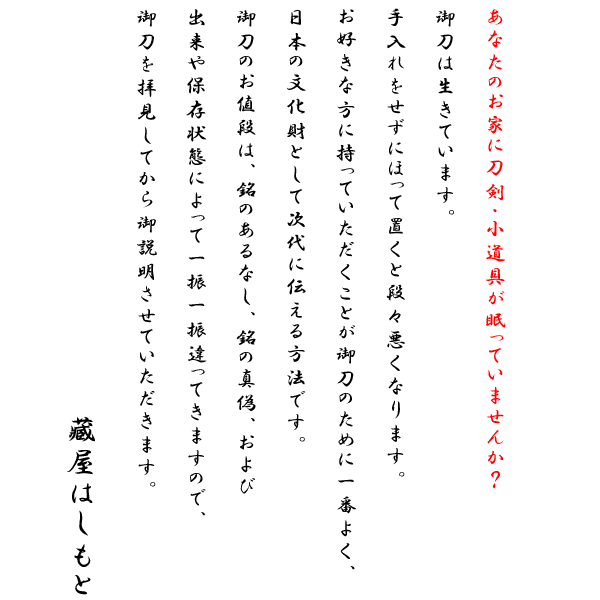 あなたのお家に刀剣・小道具が眠っていませんか?
御刀は生きています。
手入れをせずにほって置くと段々悪くなります。
お好きな方に持っていただくことが御刀のために一番よく、
日本の文化財として次代に伝える方法です。
御刀のお値段は、銘のあるなし、銘の真偽、および
出来や保存状態によって一振一振違ってきますので、
御刀を拝見してから御説明させていただきます。
蔵屋はしもと